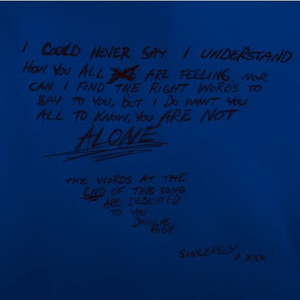 I COULD NEVER SAY I UNDERSTAND
HOW YOU ALL ARE FEELING, NOR
CAN I FIND THE RIGHT WORDS TO
SAY TO YOU, BUT I DO WANT YOU
ALL TO KNOW, YOU ARE NOT
ALONE
THE WORDS AT THE
END OF THIS SONG
ARE DEDICATED
TO YOU
SINCERELY, XXX